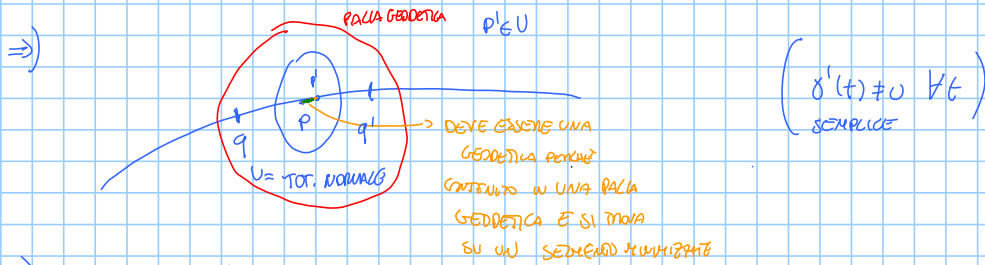 PALLA GEODETICA
p'∈U
⇒)
p'
p
q
q'
U = TOT. NORMALE
→ DEVE ESSERE UNA
GEODETICA PERCHÉ
CONTENUTO IN UNA PALLA
GEODETICA E SI TROVA
SU UN SEGMENTO MINIMIZZANTE
(γ'(t) ≠ 0 ∀t
SEMPLICE)